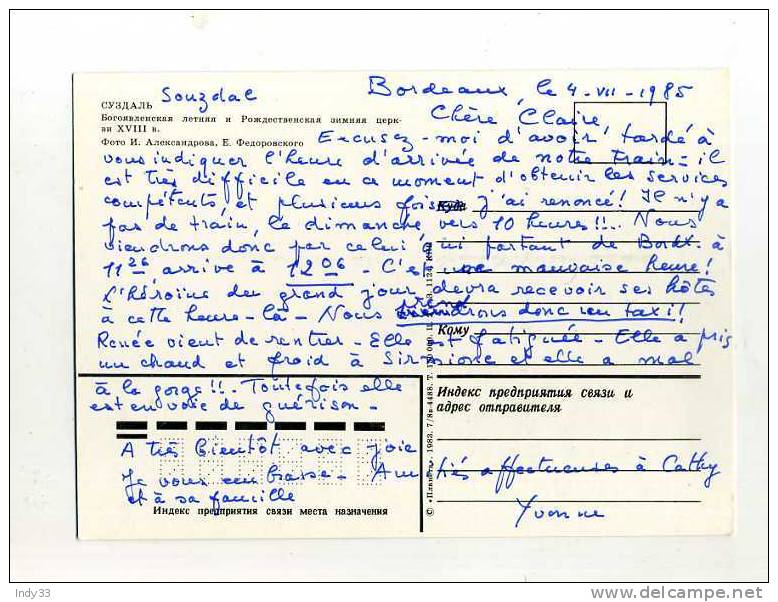 Souzdal
Bordeaux, le 4-VII-1985
СУЗДАЛЬ
Богоявленская летняя и Рождественская зимняя церк-
ви XVIII в.
Фото И. Александрова, Е. Федоровского
Chère Claire,
Excusez-moi d'avoir tardé à
vous indiquer l'heure d'arrivée de notre train - il
est très difficile en ce moment d'obtenir les services
compétents, et plusieurs fois j'ai renoncé! Il n'y a
Куда
pas de train, le dimanche vers 10 heures!!.. Nous
viendrons donc par celui qui partant de Bordx. à
11 26 arrive à 12 06 - C'est une mauvaise heure!
L'héroïne du grand jour devra recevoir ses hôtes
à cette heure-là - Nous prendrons donc un taxi!
Кому
Renée vient de rentrer - Elle est fatiguée - Elle a pris
un chaud et froid à Sirmione et elle a mal
à la gorge!!. Toutefois elle
est en voie de guérison -
Индекс предприятия связи и
адрес отправителя
A très bientôt avec joie
Je vous embrasse - Amitiés affectueuses à Cathy
et à sa famille
Yvonne
Индекс предприятия связи места назначения
© «Планета», 1983, 7/8а-4488. Т.
Indy33
delcampe.net